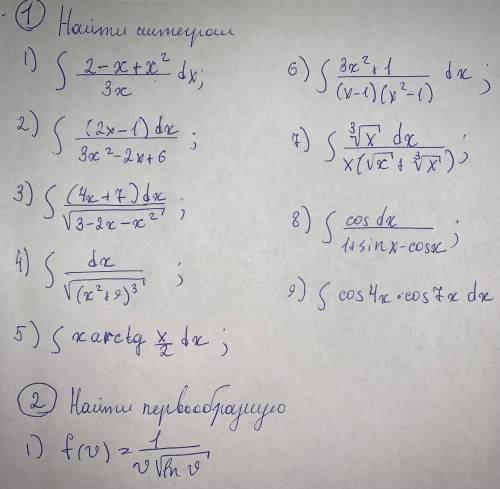 ① Найти интеграл
1) ∫ (2-x+x²)/(3x) dx;
2) ∫ ((2x-1)dx)/(3x²-2x+6) ;
3) ∫ ((4x+7)dx)/√(3-2x-x²) ;
4) ∫ dx/√((x²+9)³) ;
5) ∫ x arctg x/2 dx ;
6) ∫ (3x²+1)/((x-1)(x²-1)) dx ;
7) ∫ (∛x dx)/(x(√x+∛x)) ;
8) ∫ (cos dx)/(1+sinx-cosx) ;
9) ∫ cos4x·cos7x dx
② Найти первообразную
1) f(v) = 1/(v√(ln v))